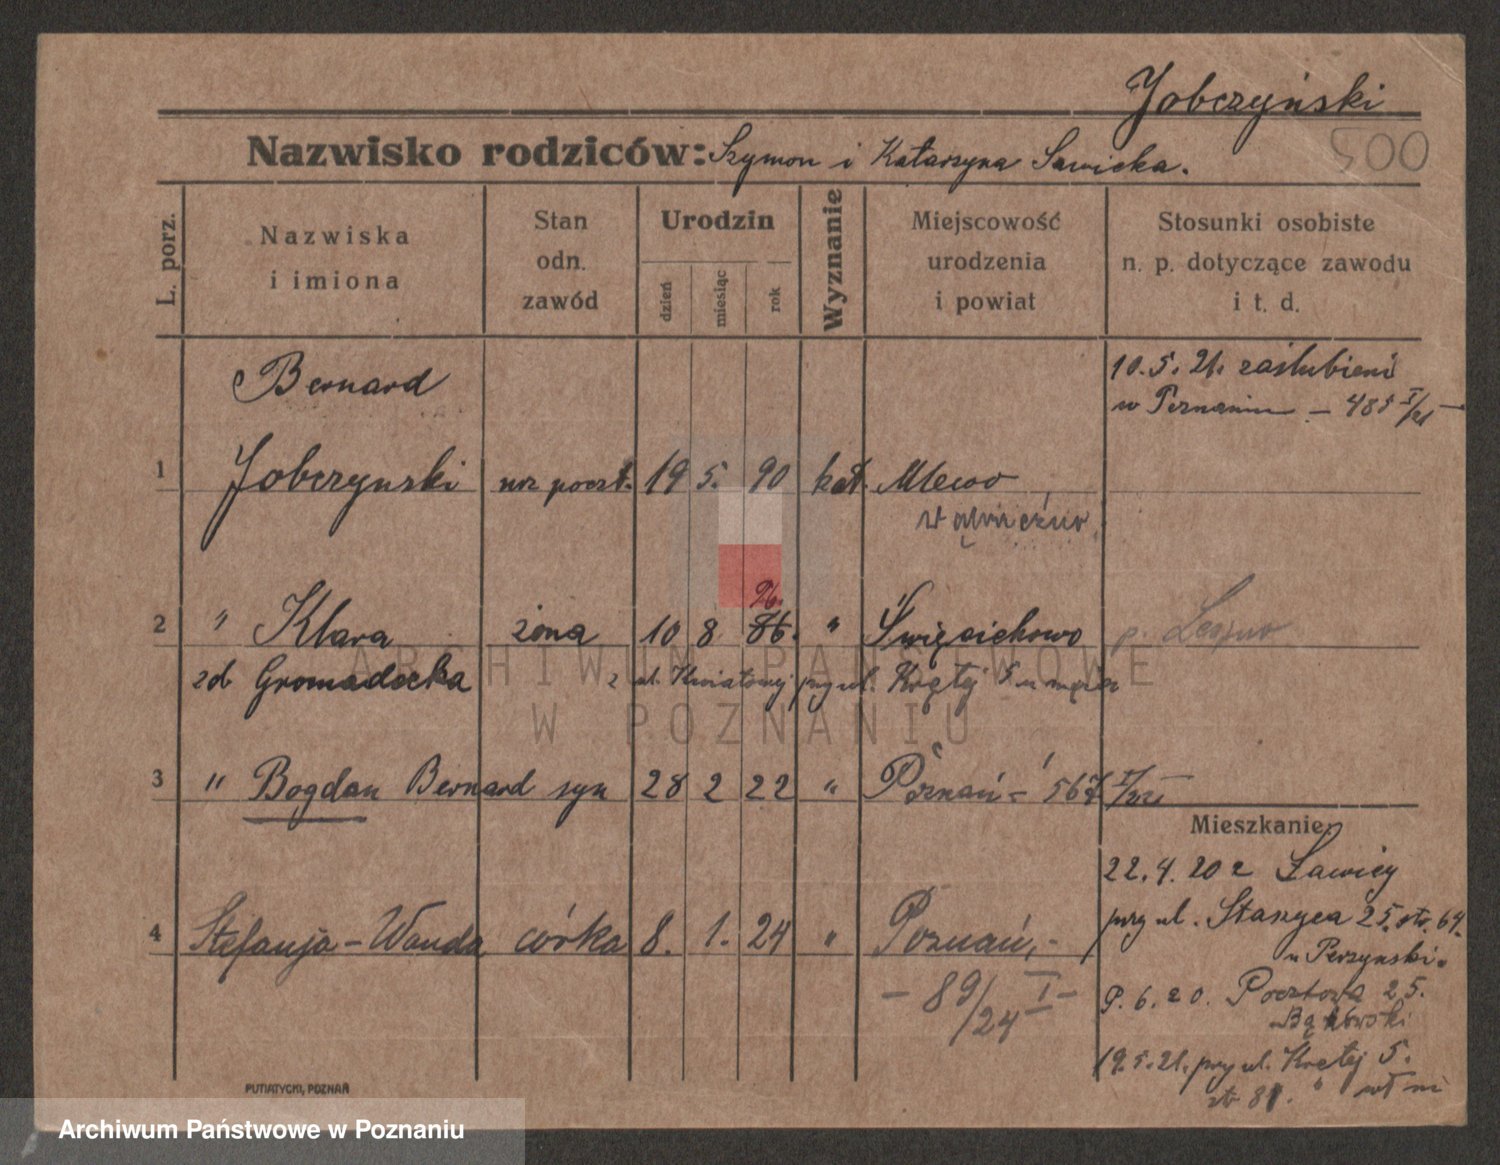 Jobczyński
500
Nazwisko rodziców: Szymon i Katarzyna Sawicka.
L. porz.
Nazwiska
i imiona
Stan
odn.
zawód
Urodzin
dzień
miesiąc
rok
Wyznanie
Miejscowość
urodzenia
i powiat
Stosunki osobiste
n. p. dotyczące zawodu
i t. d.
10. 5. 21. zaślubieni
w Poznaniu - 485 I/21
Bernard
1 Jobczynski urz poczt. 19 5. 90 kat. Mlewo
2 " Klara żona 10 8 86. " Święcichowo
96.
zd Gromadecka
z ul. Kwiatowej przy ul. Krętej 5 u męża
3 " Bogdan Bernard syn 28 2 22 " Poznań - 567 I/22
4 Stefanja - Wanda córka 8. 1. 24 " Poznań, -
- 89/24 I -
Mieszkanie:
22. 4. 20 z Ławicy
przy ul. Staszyca 25. str. 64.
u Perzynski.
6. 20. Pocztowa 25.
Bąkowski
19. 5. 21. przy ul. Krętej 5.
81.
PUTIATYCKI, POZNAŃ
ARCHIWUM PAŃSTWOWE
W POZNANIU
Archiwum Państwowe w Poznaniu